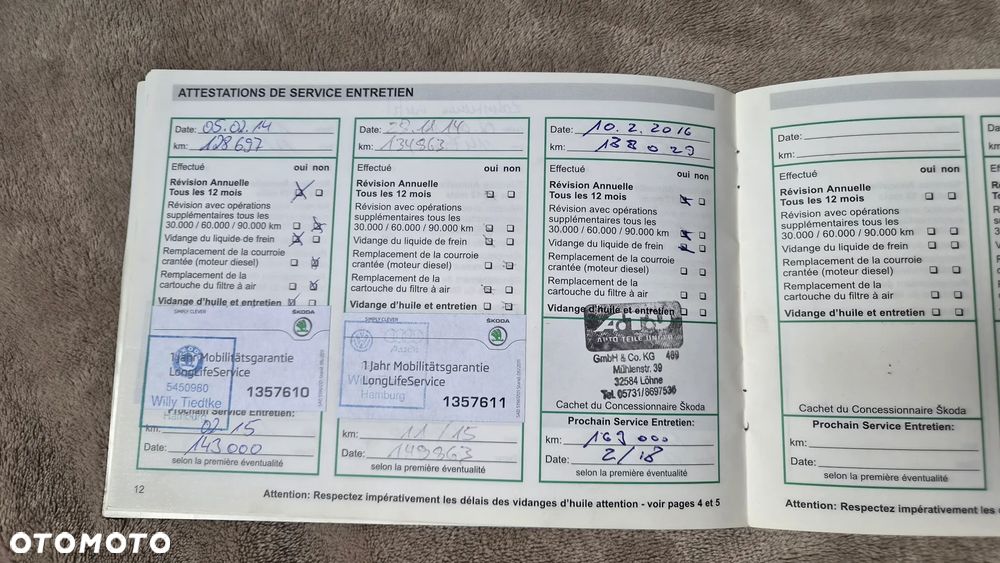 ATTESTATIONS DE SERVICE ENTRETIEN
Date: 05.02.14
km: 128697
Effectué oui non
Révision Annuelle
Tous les 12 mois
Révision avec opérations
supplémentaires tous les
30.000 / 60.000 / 90.000 km
Vidange du liquide de frein
Remplacement de la courroie
crantée (moteur diesel)
Remplacement de la
cartouche du filtre à air
Vidange d'huile et entretien
SIMPLY CLEVER
ŠKODA
1 Jahr Mobilitätsgarantie
LongLifeService
5450980
1357610
Willy Tiedtke
Hamburg
Prochain Service Entretien:
km: 02.15
Date: 143000
selon la première éventualité
Date: 11.14
km: 134963
Effectué oui non
Révision Annuelle
Tous les 12 mois
Révision avec opérations
supplémentaires tous les
30.000 / 60.000 / 90.000 km
Vidange du liquide de frein
Remplacement de la courroie
crantée (moteur diesel)
Remplacement de la
cartouche du filtre à air
Vidange d'huile et entretien
SIMPLY CLEVER
ŠKODA
1 Jahr Mobilitätsgarantie
LongLifeService
Hamburg
1357611
km: 11/15
Date: 149963
selon la première éventualité
Date: 10.2.2016
km: 138029
Effectué oui non
Révision Annuelle
Tous les 12 mois
Révision avec opérations
supplémentaires tous les
30.000 / 60.000 / 90.000 km
Vidange du liquide de frein
Remplacement de la courroie
crantée (moteur diesel)
Remplacement de la
cartouche du filtre à air
Vidange d'huile et entretien
A.T.U
AUTO TEILE UNGER
GmbH & Co. KG 469
Mühlenstr. 39
32584 Löhne
Tel. 05731/8697536
Cachet du Concessionnaire Škoda
Prochain Service Entretien:
km: 163 000
Date: 2/18
selon la première éventualité
12
Attention: Respectez impérativement les délais des vidanges d'huile attention - voir pages 4 et 5
Date:
km:
Effectué oui non
Révision Annuelle
Tous les 12 mois
Révision avec opérations
supplémentaires tous les
30.000 / 60.000 / 90.000 km
Vidange du liquide de frein
Remplacement de la courroie
crantée (moteur diesel)
Remplacement de la
cartouche du filtre à air
Vidange d'huile et entretien
Cachet du Concessionnaire Škoda
Prochain Service Entretien:
km:
Date:
selon la première éventualité
Attention: Respectez impérativement les
OTOMOTO